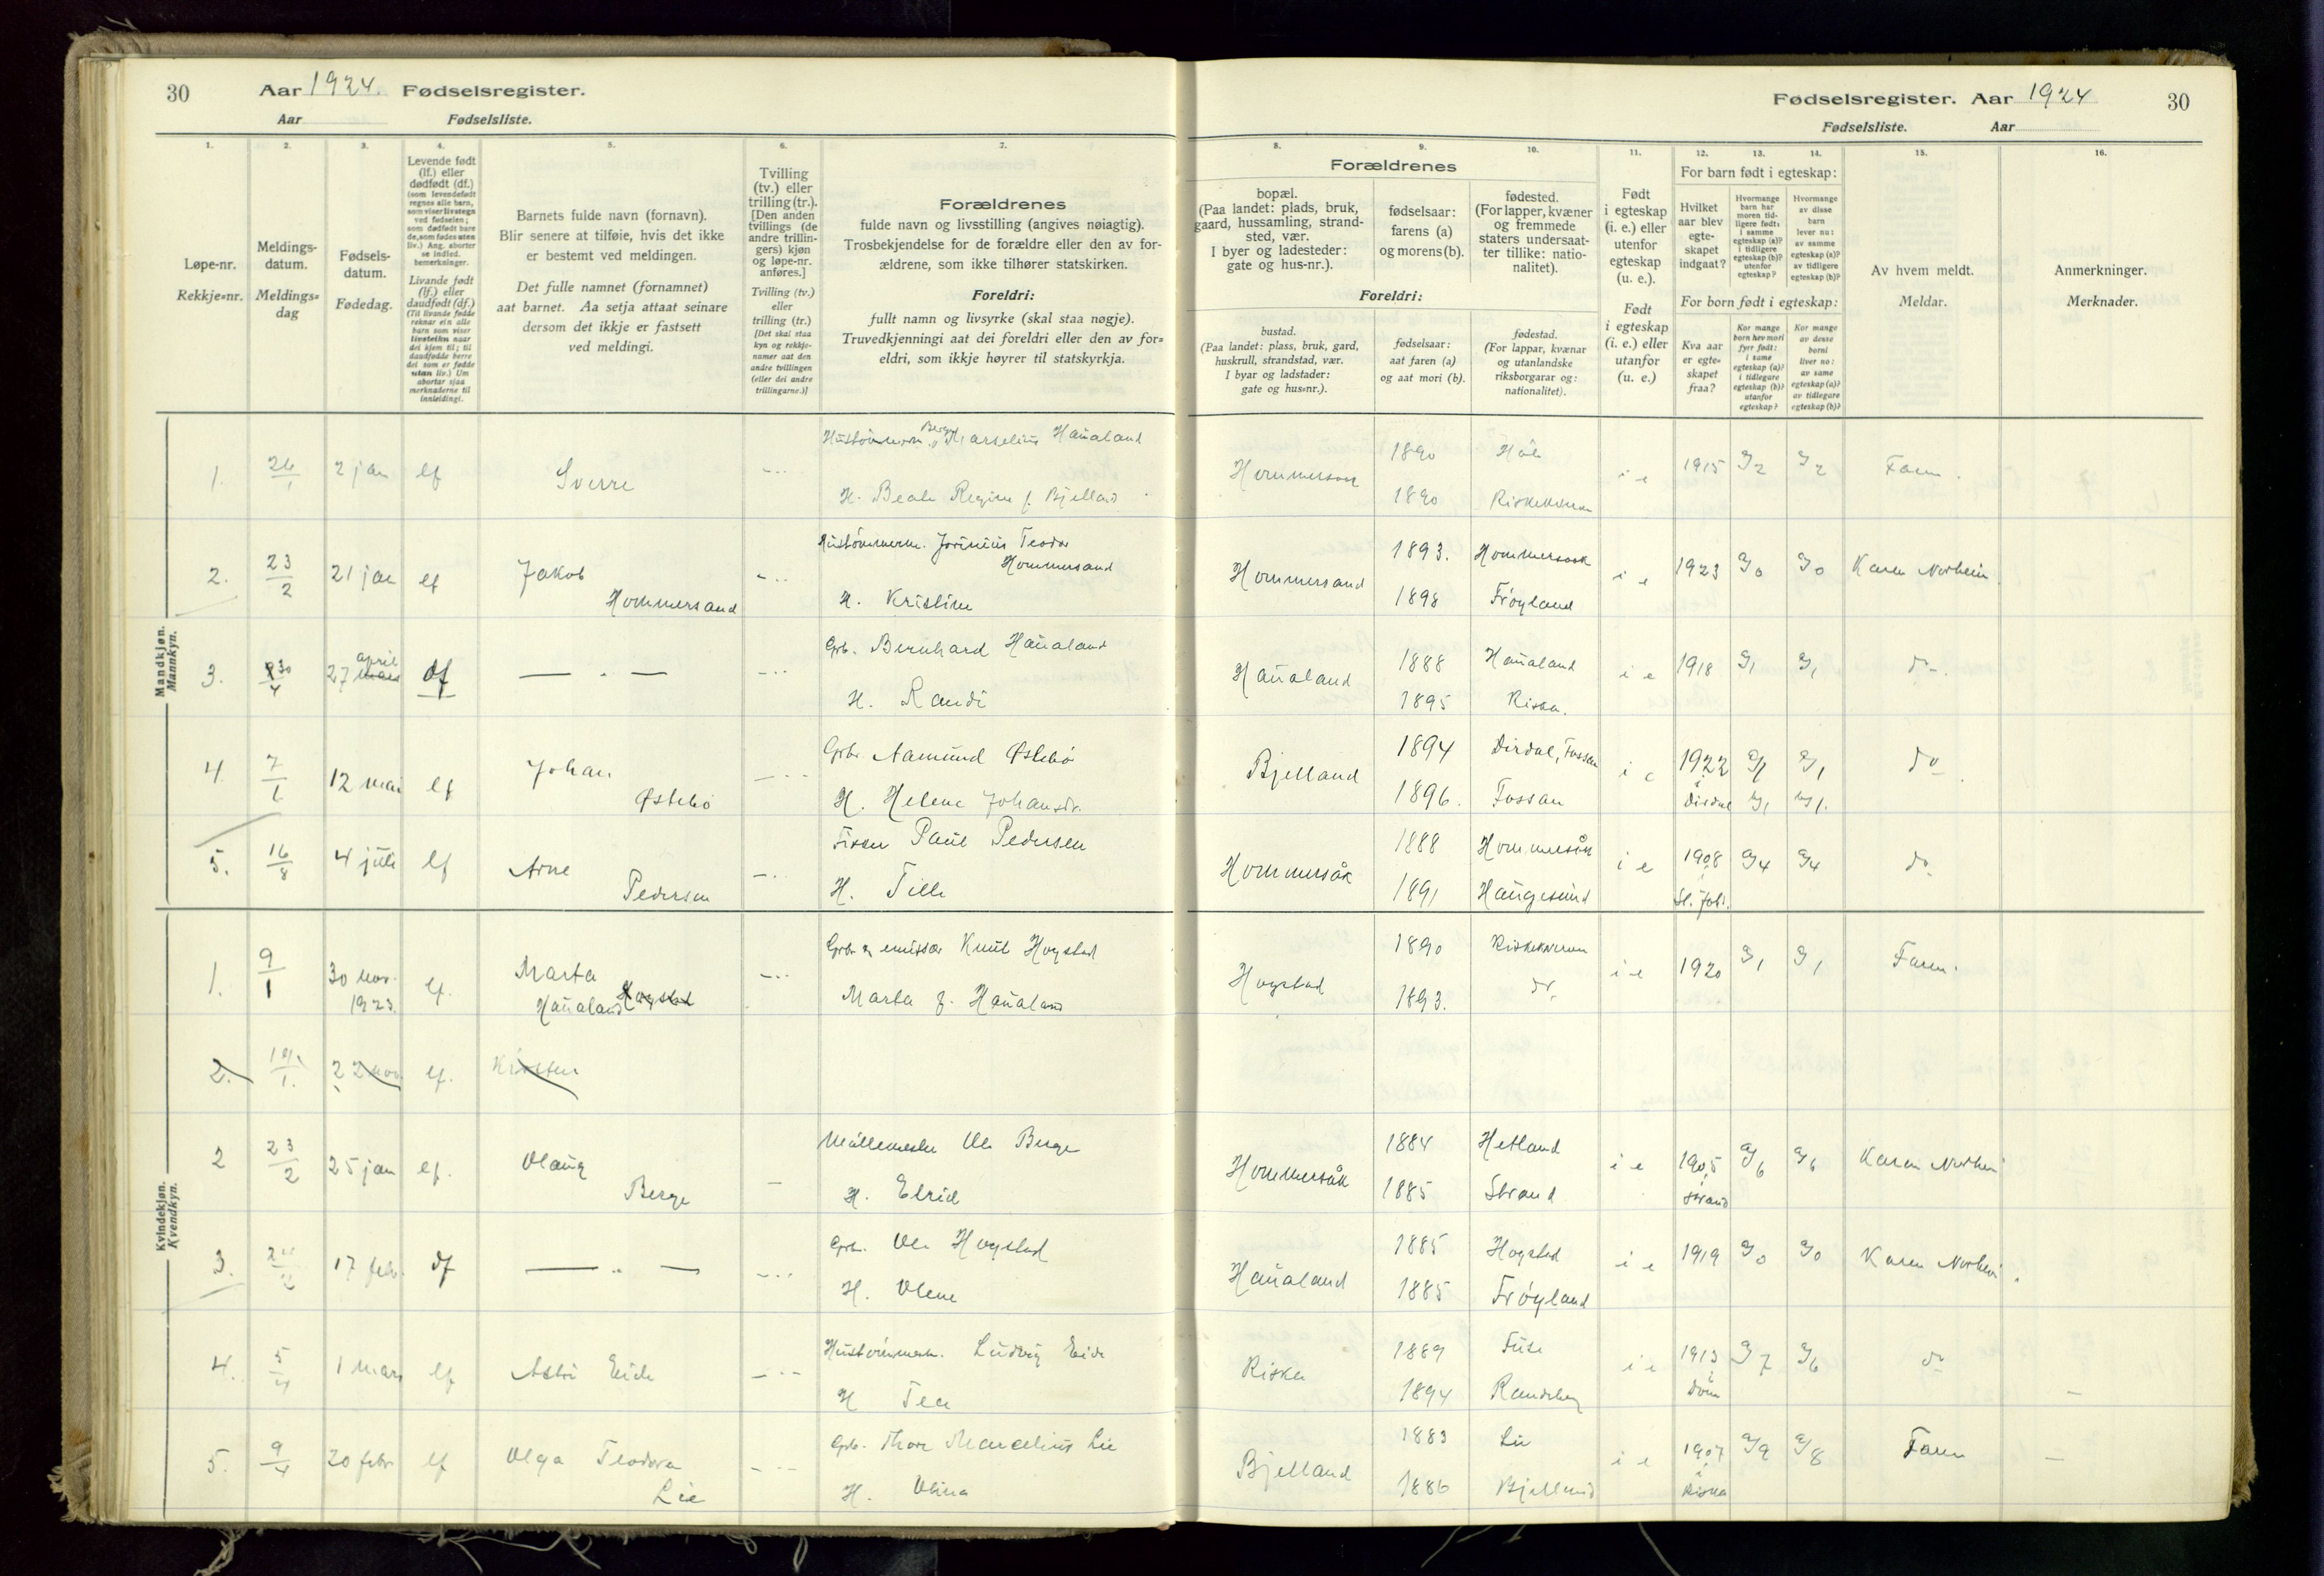 30
Aar 1924. Fødselsregister.
Aar
Fødselsliste.
Fødselsregister. Aar 1924
30
Fødselsliste.
Aar
1.
Løpe-nr.
Rekkje=nr.
2.
Meldings-
datum.
Meldings=
dag
3.
Fødsels-
datum.
Fødedag.
4.
Levende født
(lf.) eller
dødfødt (df.)
(som levendefødt
regnes alle barn,
som viser livstegn
ved fødselen;
som dødfødt bare
de, som fødes uten
liv.) Ang. aborter
se indled.
bemerkninger.
Livande født
(lf.) eller
daudfødt (df.)
(Til livande fødde
reknar ein alle
barn som viser
livsteikn naar
dei kjem til; til
daudfødde berre
dei som er fødde
utan liv.) Um
abortar sjaa
merknaderne til
innleidingi.
5.
Barnets fulde navn (fornavn).
Blir senere at tilføie, hvis det ikke
er bestemt ved meldingen.
Det fulle namnet (fornamnet)
aat barnet. Aa setja attaat seinare
dersom det ikkje er fastsett
ved meldingi.
6.
Tvilling
(tv.) eller
trilling (tr.).
[Den anden
tvillings (de
andre trillin-
gers) kjøn
og løpe-nr.
anføres.]
Tvilling (tv.)
eller
trilling (tr.)
[Det skal staa
kyn og rekkje-
numer aat den
andre tvillingen
(eller dei andre
trillingarne.)]
7.
Forældrenes
fulde navn og livsstilling (angives nøiagtig).
Trosbekjendelse for de forældre eller den av for-
ældrene, som ikke tilhører statskirken.
Foreldri:
fullt namn og livsyrke (skal staa nøgje).
Truvedkjenningi aat dei foreldri eller den av for=
eldri, som ikkje høyrer til statskyrkja.
Forældrenes
8.
bopæl.
(Paa landet: plads, bruk,
gaard, hussamling, strand-
sted, vær.
I byer og ladesteder:
gate og hus-nr.).
9.
fødselsaar:
farens (a)
og morens (b).
10.
fødested.
(For lapper, kvæner
og fremmede
staters undersaat-
ter tillike: natio-
nalitet).
Foreldri:
bustad.
(Paa landet: plass, bruk, gard,
huskrull, strandstad, vær.
I byar og ladstader:
gate og hus=nr.).
fødselsaar:
aat faren (a)
og aat mori (b).
fødestad.
(For lappar, kvænar
og utanlandske
riksborgarar og:
nationalitet).
11.
Født
i egteskap
(i. e.) eller
utenfor
egteskap
(u. e.).
Født
i egteskap
(i. e.) eller
utanfor
(u. e.)
For barn født i egteskap:
12.
Hvilket
aar blev
egte-
skapet
indgaat?
13.
Hvormange
barn har
moren tid-
ligere født:
i samme
egteskap (a)?
i tidligere
egteskap (b)?
utenfor
egteskap?
14.
Hvormange
av disse
barn
lever nu:
av samme
egteskap (a)?
av tidligere
egteskap (b)?
For born født i egteskap:
Kva aar
er egte-
skapet
fraa?
Kor mange
born hev mori
fyrr født:
i same
egteskap (a)?
i tidlegare
egteskap (b)?
utanfor
egteskap?
Kor mange
av desse
borni
liver no:
av same
egteskap (a)?
av tidlegare
egteskap (b)?
15.
Av hvem meldt.
Meldar.
16.
Anmerkninger.
Merknader.
Mandkjøn.
Mannkyn.
1. 26/1 2 jan lf Sverre
Marselius Haualand
H. Beate Regine f. Bjelland
1890
1890
i e 1915 Faren
2. 23/2 21 jan lf Jakob
Hommersand
Teodor
Hommersand
H. Kristine
Hommersand 1893. Hommersaak
1898 Frøyland
i e 1923 a/0 a/0 Karen Norheim
3. 30/4 27 april lf
Grb. Bernhard Haualand
H. Randi
Haualand 1888 Haualand
1895 Riska.
i e 1918 a/1 a/1 do.
4. 12 mai lf Johan
Østebø
Grbr. Aamund Østebø
H. Helene Johansdr.
Bjelland 1894 Dirdal, Fossan
1896. Fossan
i e 1922 i Dirdal do
5. 16/8 4 juli lf Arne
Pedersen
Fisker Paul Pedersen
H. Tille
Hommersåk 1888 Hommersåk
1891 Haugesund
i e 1908 a/4 a/4 do
Kvindekjøn.
Kvendkyn.
1. 9/1 30 nov. 1923. lf. Marta
Haualand Hogstad
Grbr. og emissær Knut Hogstad
Marta f. Haualand
Hogstad 1890
1893. do.
i e 1920 a/1 a/1 Faren.
2. 19/1. 22 nov. lf. Kirsten
2 23/2 25 jan lf. Olaug
Berge
Møllemester Ole Berge
H. Elrid
Hommersåk 1884 Hetland
1885 Strand
i e 1905 i Strand a/6 a/6 Karen Norheim
3. 17 febr. df
Grb. Ole Hogstad
H. Olene
Haualand 1885 Hogstad
1885 Frøyland
i e 1919 a/0 a/0 Karen Norheim.
4. 5/4 1 mars lf Astri Eide
Ludvig Eide
H Tea
Riska 1889
1894 Randeberg
i e 1913 i Dom a/7 a/6 do
5. 9/4 20 febr lf Olga Teodora
Lie
Grb. Thore Marcelius Lie
H. Olina
Bjelland 1883 Lie
1886 Bjelland
i e 1907 i Riska a/9 a/8 Faren